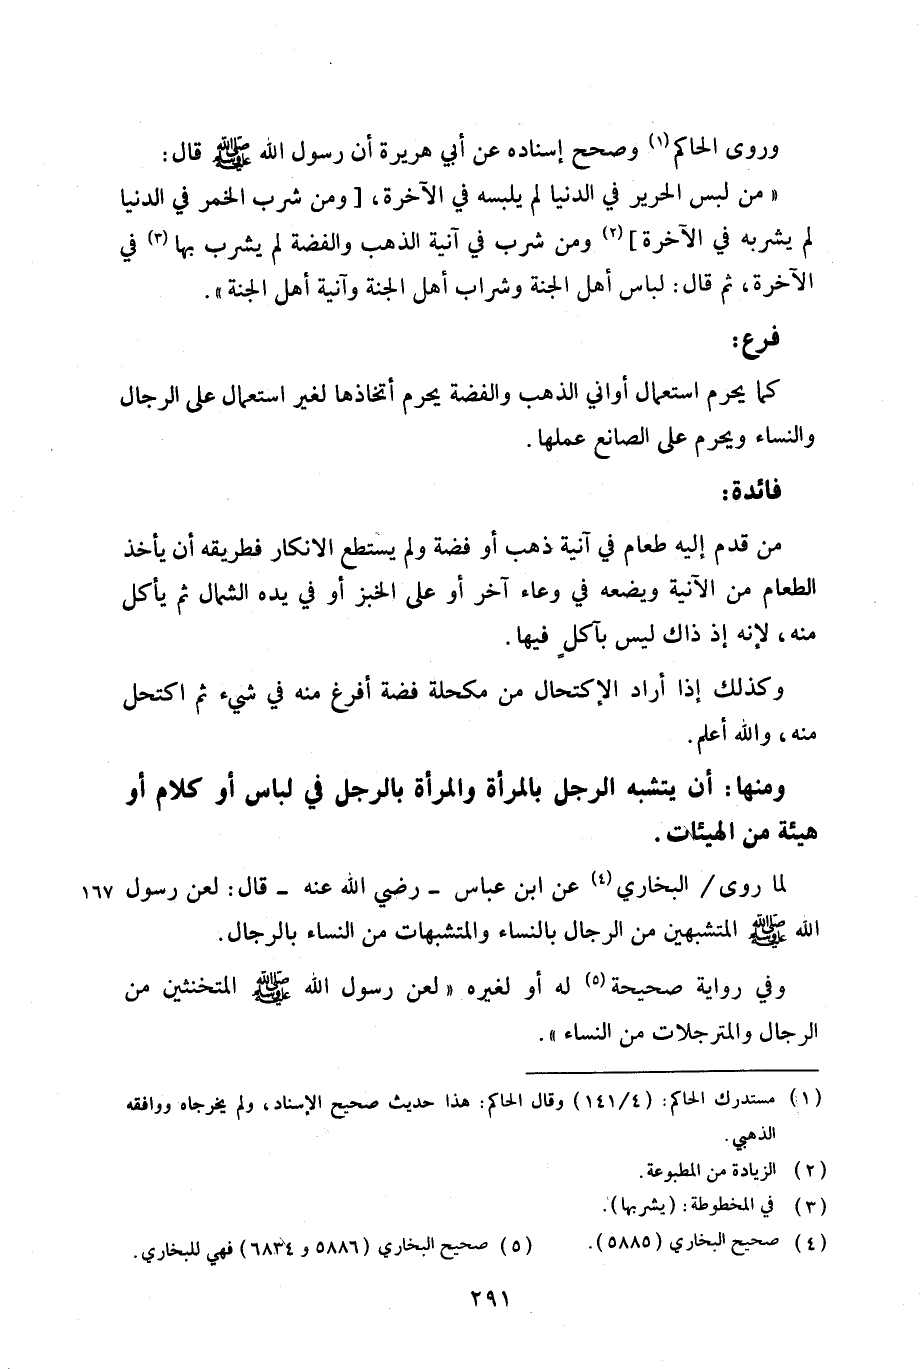 وروى الحاكم(١) وصحح إسناده عن أبي هريرة أن رسول الله ﷺ قال:
« من لبس الحرير في الدنيا لم يلبسه في الآخرة، [ ومن شرب الخمر في الدنيا
لم يشربه في الآخرة ](٢) ومن شرب في آنية الذهب والفضة لم يشرب بها(٣) في
الآخرة، ثم قال: لباس أهل الجنة وشراب أهل الجنة وآنية أهل الجنة ».
فرع:
كما يحرم استعمال أواني الذهب والفضة يحرم أتخاذها لغير استعمال على الرجال
والنساء ويحرم على الصانع عملها.
فائدة:
من قدم إليه طعام في آنية ذهب أو فضة ولم يستطع الانكار فطريقه أن يأخذ
الطعام من الآنية ويضعه في وعاء آخر أو على الخبز أو في يده الشمال ثم يأكل
منه، لإنه إذ ذاك ليس بآكلٍ فيها.
وكذلك إذا أراد الإكتحال من مكحلة فضة أفرغ منه في شيء ثم اكتحل
منه، والله أعلم.
ومنها: أن يتشبه الرجل بالمرأة والمرأة بالرجل في لباس أو كلام أو
هيئة من الهيئات.
لما روى/ البخاري(٤) عن ابن عباس - رضي الله عنه - قال: لعن رسول ١٦٧
الله ﷺ المتشبهين من الرجال بالنساء والمتشبهات من النساء بالرجال.
وفي رواية صحيحة(٥) له أو لغيره « لعن رسول الله ﷺ المتخنثين من
الرجال والمترجلات من النساء ».
(١) مستدرك الحاكم: (١٤١/٤) وقال الحاكم: هذا حديث صحيح الإسناد، ولم يخرجاه ووافقه
الذهبي.
(٢) الزيادة من المطبوعة.
(٣) في المخطوطة: (يشربها).
(٤) صحيح البخاري (٥٨٨٥). (٥) صحيح البخاري (٥٨٨٦ و ٦٨٣٤) فهي للبخاري.
٢٩١